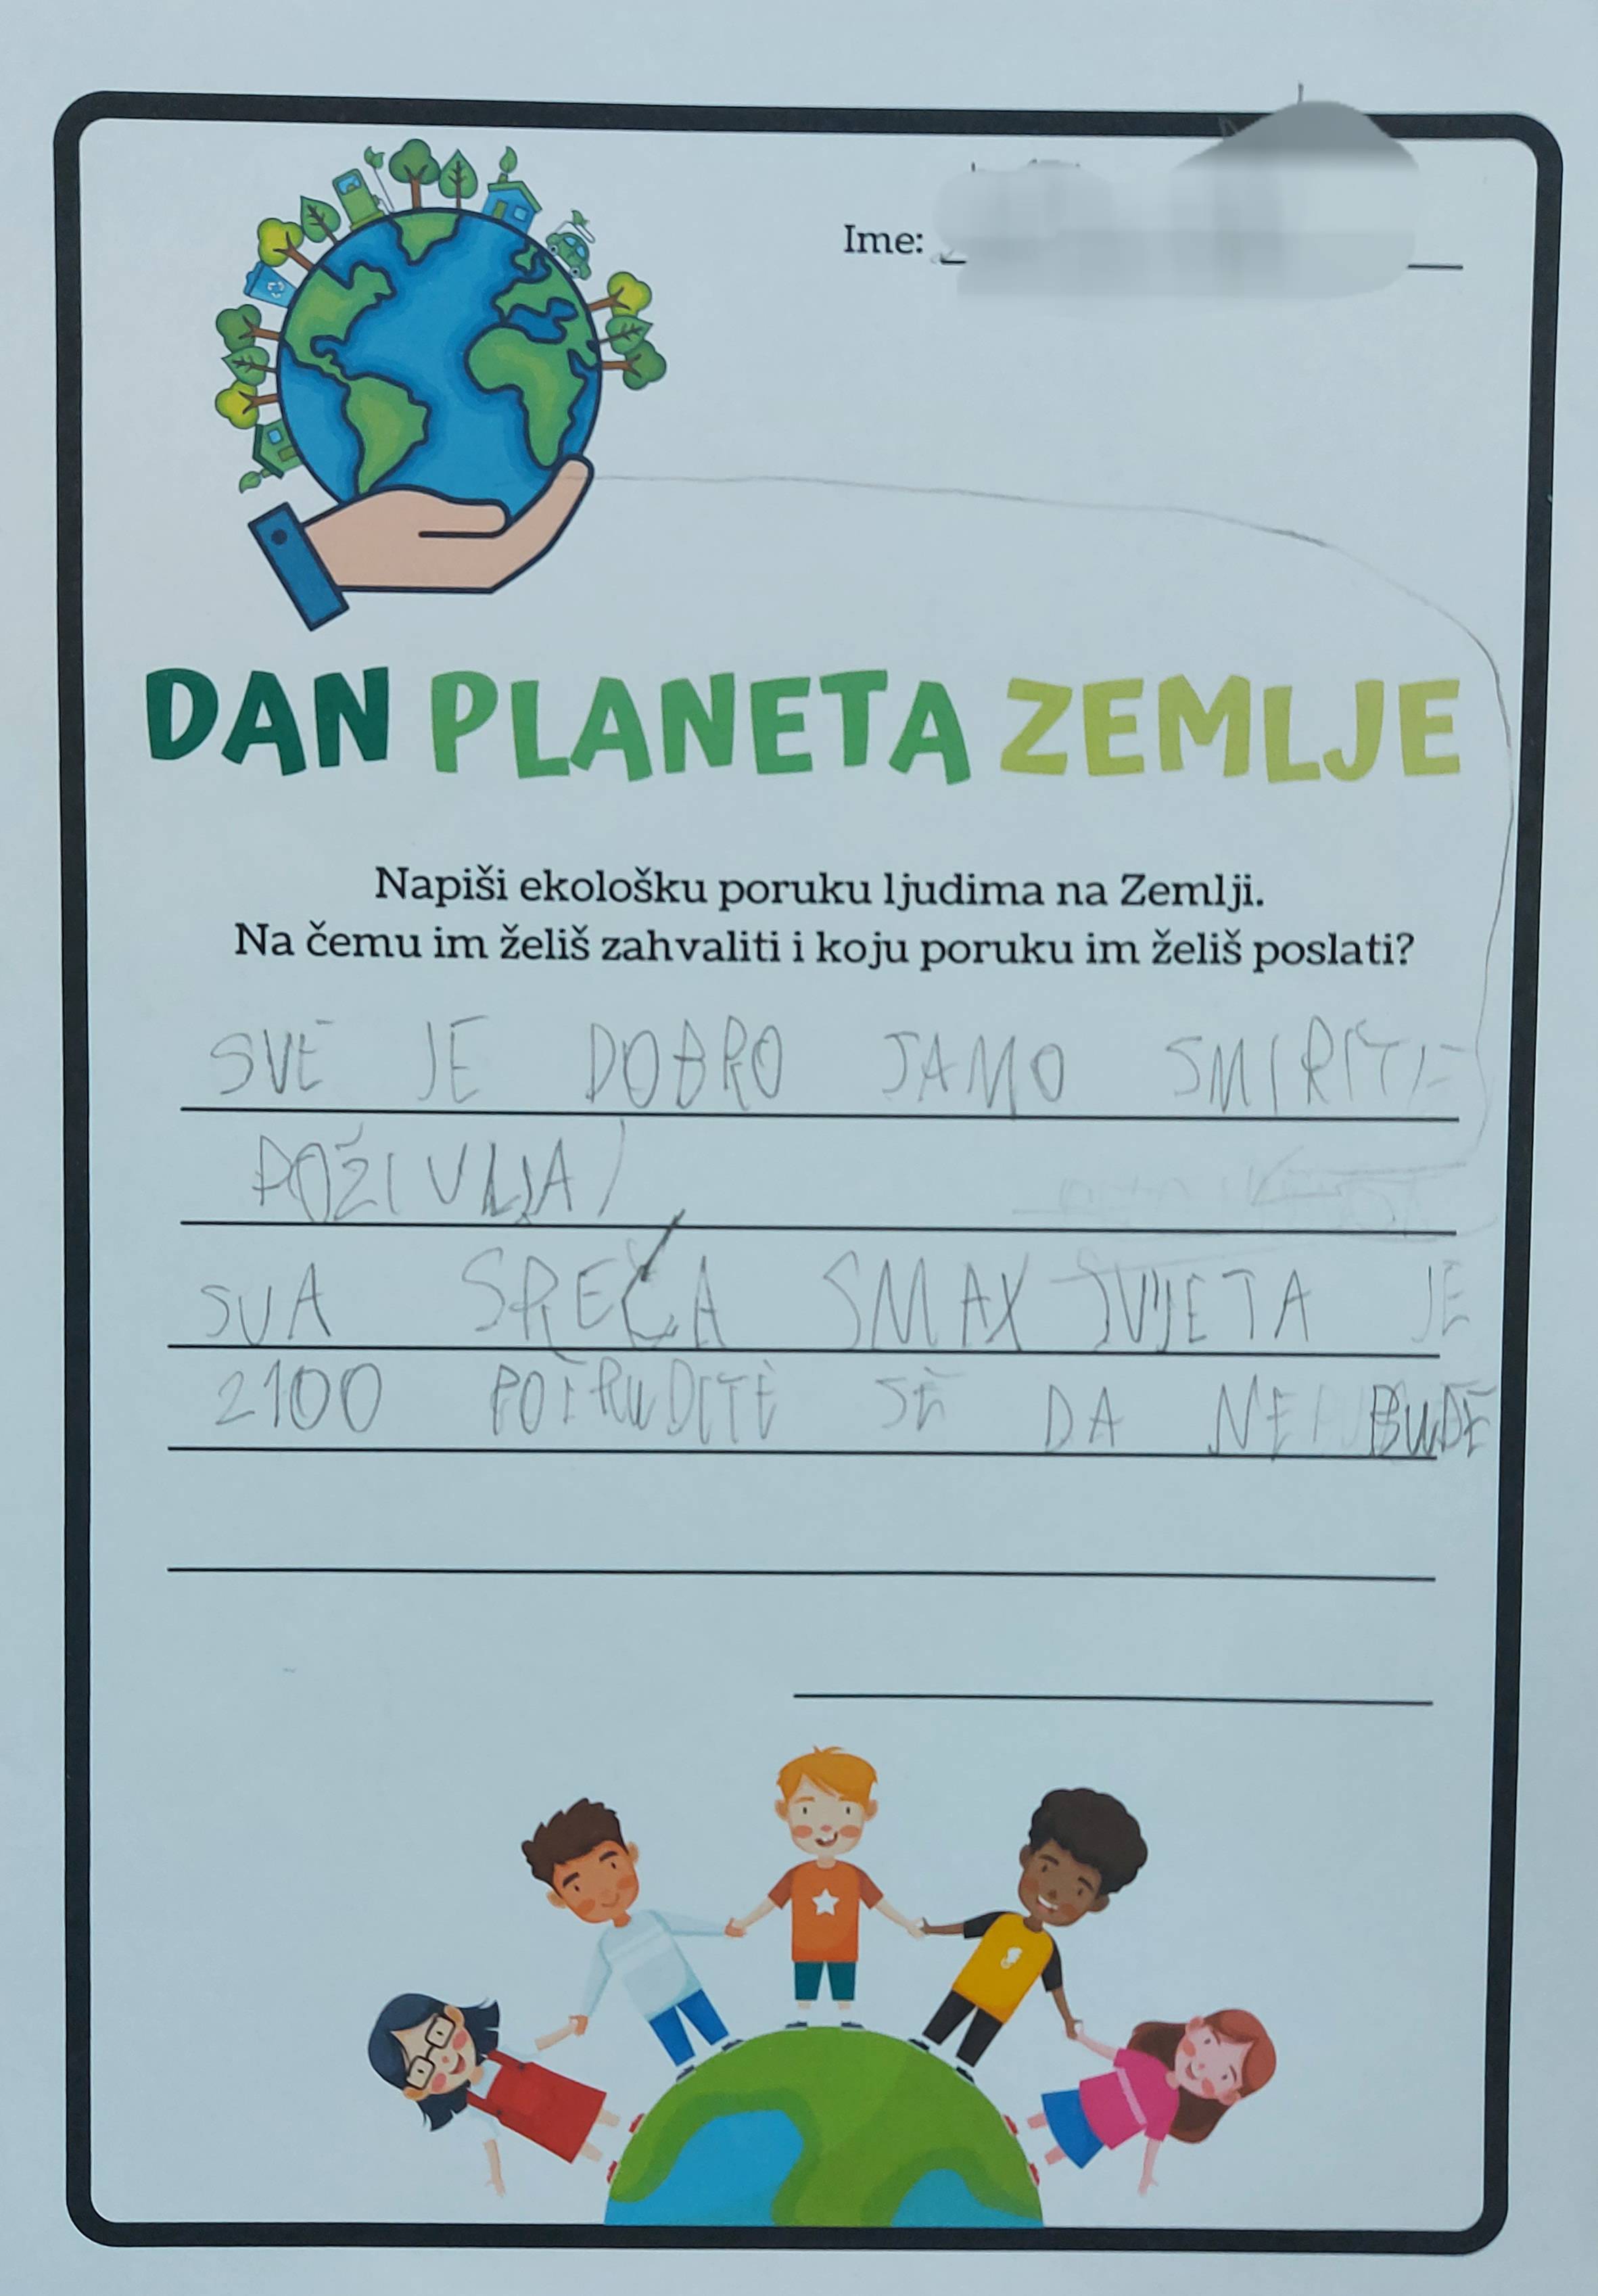 Ime:
DAN PLANETA ZEMLJE
Napiši ekološku poruku ljudima na Zemlji.
Na čemu im želiš zahvaliti i koju poruku im želiš poslati?
SVE JE DOBRO JAMO SMIRITE
POŽIVLJAJ
SVA SREČA SMAX SVIJETA JE
2100 POTRUDITE SE DA NE BUDE